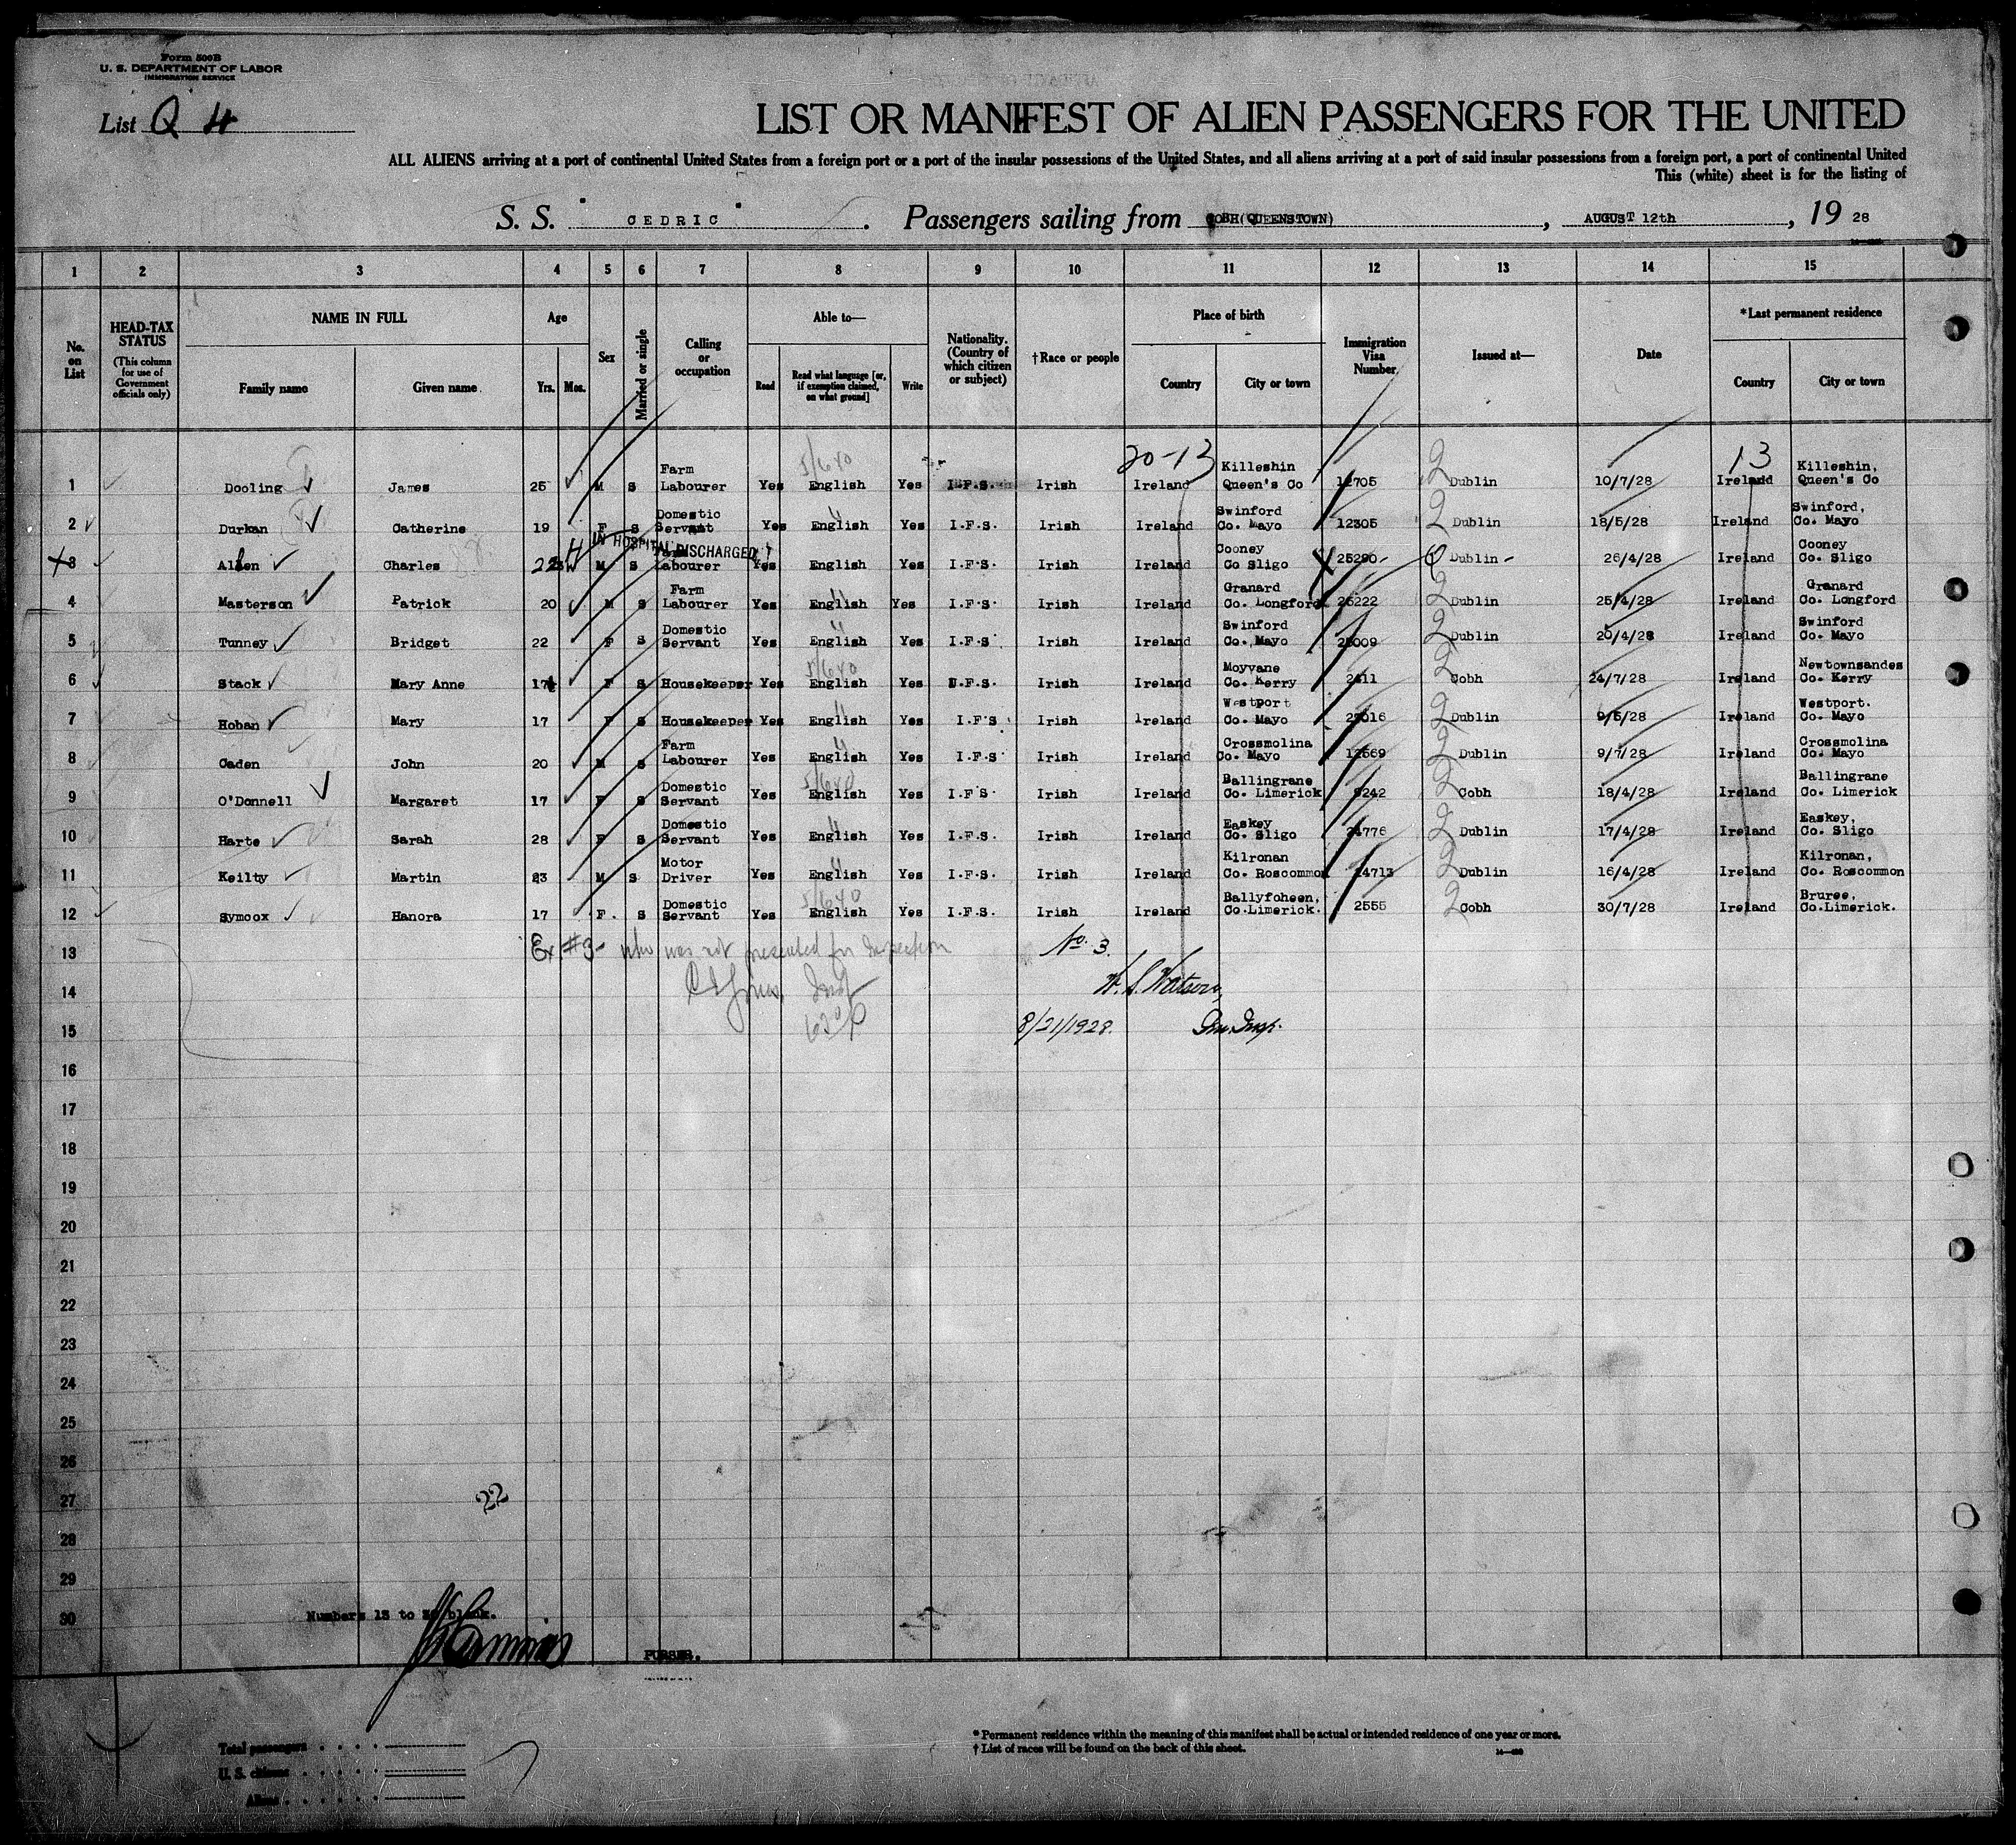 Form 500B
U. S. DEPARTMENT OF LABOR
IMMIGRATION SERVICE
List Q 4
LIST OR MANIFEST OF ALIEN PASSENGERS FOR THE UNITED
ALL ALIENS arriving at a port of continental United States from a foreign port or a port of the insular possessions of the United States, and all aliens arriving at a port of said insular possessions from a foreign port, a port of continental United
This (white) sheet is for the listing of
S. S. " CEDRIC ". Passengers sailing from COBH(QUEENSTOWN), AUGUST 12th, 19 28
1 2 3 4 5 6 7 8 9 10 11 12 13 14 15
No. on List
HEAD-TAX STATUS
(This column for use of Government officials only)
NAME IN FULL
Family name Given name
Age
Yrs. Mos.
Sex
Married or single
Calling or occupation
Able to—
Read
Read what language [or, if exemption claimed, on what ground]
Write
Nationality. (Country of which citizen or subject)
†Race or people
Place of birth
Country City or town
Immigration Visa Number
Issued at—
Date
*Last permanent residence
Country City or town
20-13 13
1 Dooling James 25 M S Farm Labourer Yes English Yes I.F.S. Irish Ireland Killeshin Queen's Co 12705 2 Dublin 10/7/28 Ireland Killeshin, Queen's Co
2 Durkan Catherine 19 F S Domestic Servant Yes English Yes I.F.S. Irish Ireland Swinford Co. Mayo 12305 2 Dublin 18/5/28 Ireland Swinford, Co. Mayo
IN HOSPITAL DISCHARGED
3 Allen Charles 22 M S Labourer Yes English Yes I.F.S. Irish Ireland Cooney Co Sligo 25290 Dublin 26/4/28 Ireland Cooney Co. Sligo
4 Masterson Patrick 20 M S Farm Labourer Yes English Yes I.F.S. Irish Ireland Granard Co. Longford 25222 2 Dublin 25/4/28 Ireland Granard Co. Longford
5 Tunney Bridget 22 F S Domestic Servant Yes English Yes I.F.S. Irish Ireland Swinford Co. Mayo 25009 2 Dublin 20/4/28 Ireland Swinford Co. Mayo
6 Stack Mary Anne 17 F S Housekeeper Yes English Yes I.F.S. Irish Ireland Moyvane Co. Kerry 2411 2 Cobh 24/7/28 Ireland Newtownsandes Co. Kerry
7 Hoban Mary 17 F S Housekeeper Yes English Yes I.F.S. Irish Ireland Westport Co. Mayo 27016 2 Dublin 9/5/28 Ireland Westport. Co. Mayo
8 Caden John 20 M S Farm Labourer Yes English Yes I.F.S. Irish Ireland Crossmolina Co. Mayo 12669 2 Dublin 9/7/28 Ireland Crossmolina Co. Mayo
9 O'Donnell Margaret 17 F S Domestic Servant Yes English Yes I.F.S. Irish Ireland Ballingrane Co. Limerick 9242 2 Cobh 18/4/28 Ireland Ballingrane Co. Limerick
10 Harte Sarah 28 F S Domestic Servant Yes English Yes I.F.S. Irish Ireland Easkey Co. Sligo 24776 2 Dublin 17/4/28 Ireland Easkey, Co. Sligo
11 Keilty Martin 23 M S Motor Driver Yes English Yes I.F.S. Irish Ireland Kilronan Co. Roscommon 24713 2 Dublin 16/4/28 Ireland Kilronan, Co. Roscommon
12 Symcox Hanora 17 F. S Domestic Servant Yes English Yes I.F.S. Irish Ireland Ballyfoheen, Co.Limerick. 2555 2 Cobh 30/7/28 Ireland Bruree, Co.Limerick.
13 Ex #3- who was not presented for Inspection No. 3.
14 W. S. Watson,
15 8/21/1928. Imm. Insp.
16
17
18
19
20
21
22
23
24
25
26
27 22
28
29
30 Numbers 13 to 30 blank.
PURSER.
Total passengers
U. S. citizens
Aliens
* Permanent residence within the meaning of this manifest shall be actual or intended residence of one year or more.
† List of races will be found on the back of this sheet.